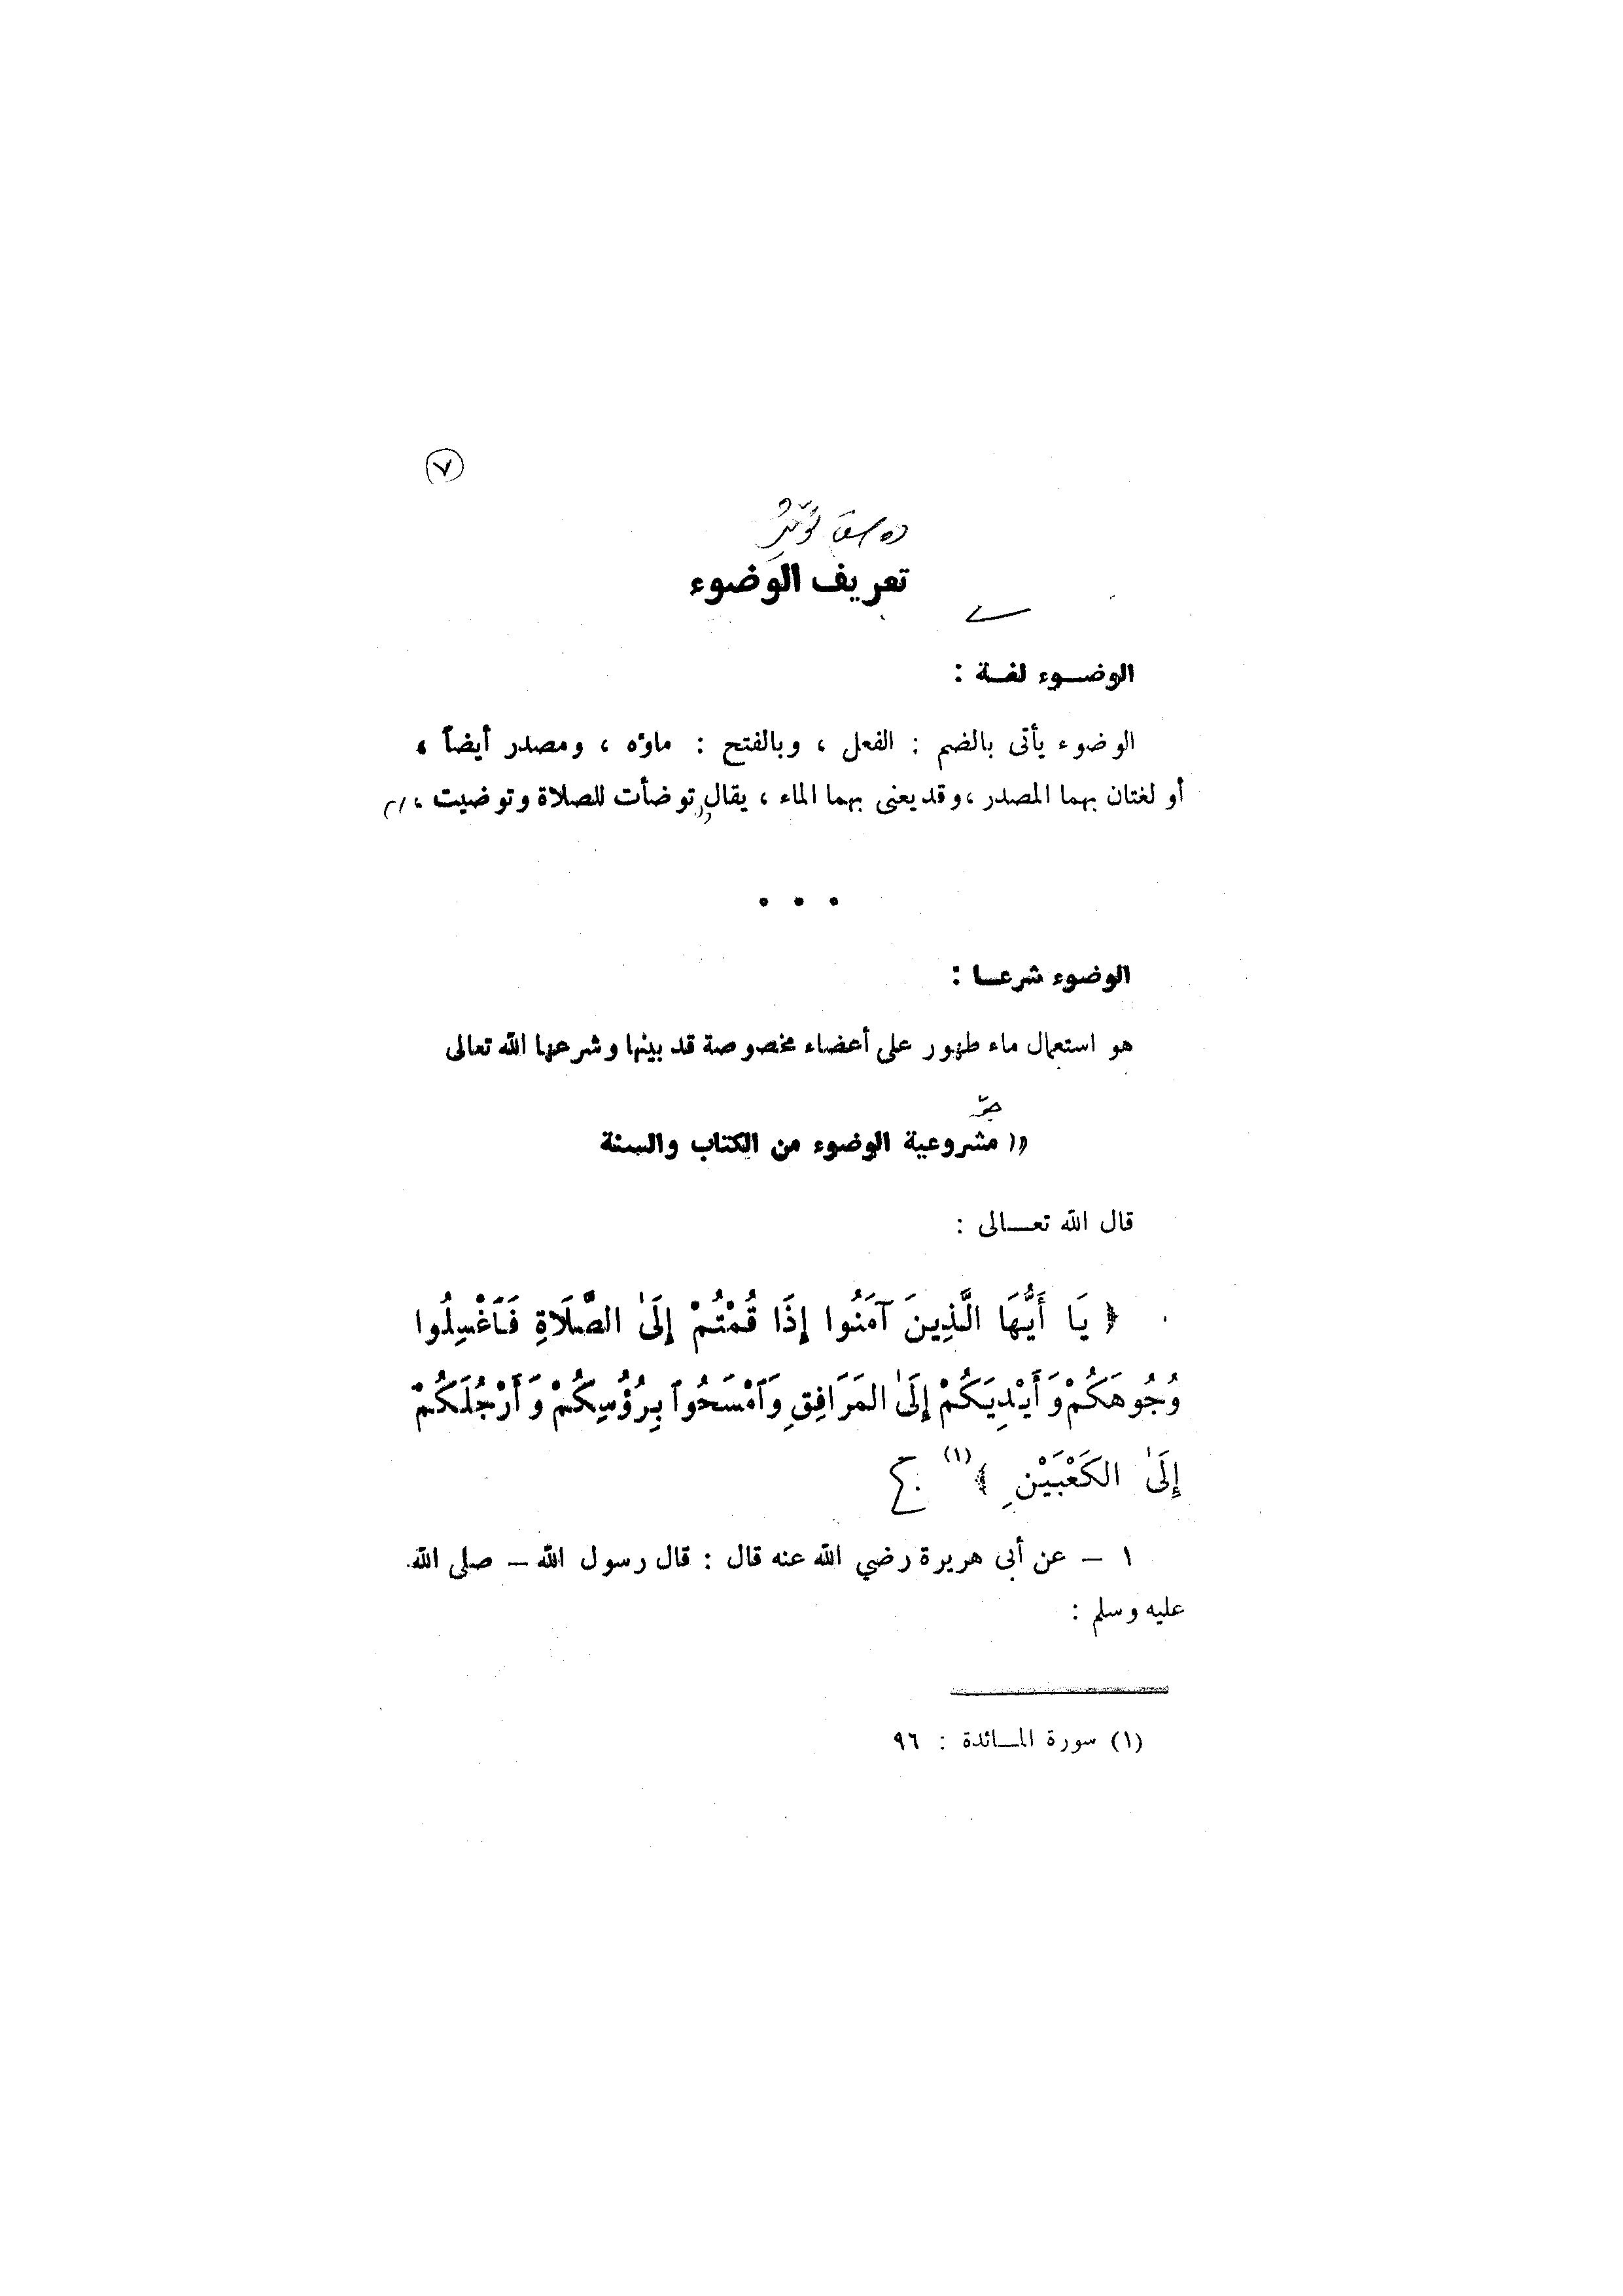 ٧
تعريف الوضوء
الوضـوء لغـة :
الوضوء يأتى بالضم : الفعل ، وبالفتح : ماؤه ، ومصدر أيضاً ،
أو لغتان بهما المصدر ، وقد يعنى بهما الماء ، يقال توضأت للصلاة وتوضيت ،
• • •
الوضوء شرعـا :
هو استعمال ماء طهور على أعضاء مخصوصة قد بينها وشرعها الله تعالى
مشروعية الوضوء من الكتاب والسنة
قال الله تعـالى :
﴿ يَا أَيُّهَا الَّذِينَ آمَنُوا إِذَا قُمْتُمْ إِلَىٰ الصَّلَاةِ فَٱغْسِلُوا
وُجُوهَكُمْ وَأَيْدِيَكُمْ إِلَىٰ المَرَافِقِ وَٱمْسَحُوا بِرُؤُسِكُمْ وَأَرْجُلَكُمْ
إِلَىٰ الكَعْبَيْنِ ﴾ (١)
١ – عن أبى هريرة رضي الله عنه قال : قال رسول الله – صلى الله
عليه وسلم :
(١) سورة المـائدة : ٩٦